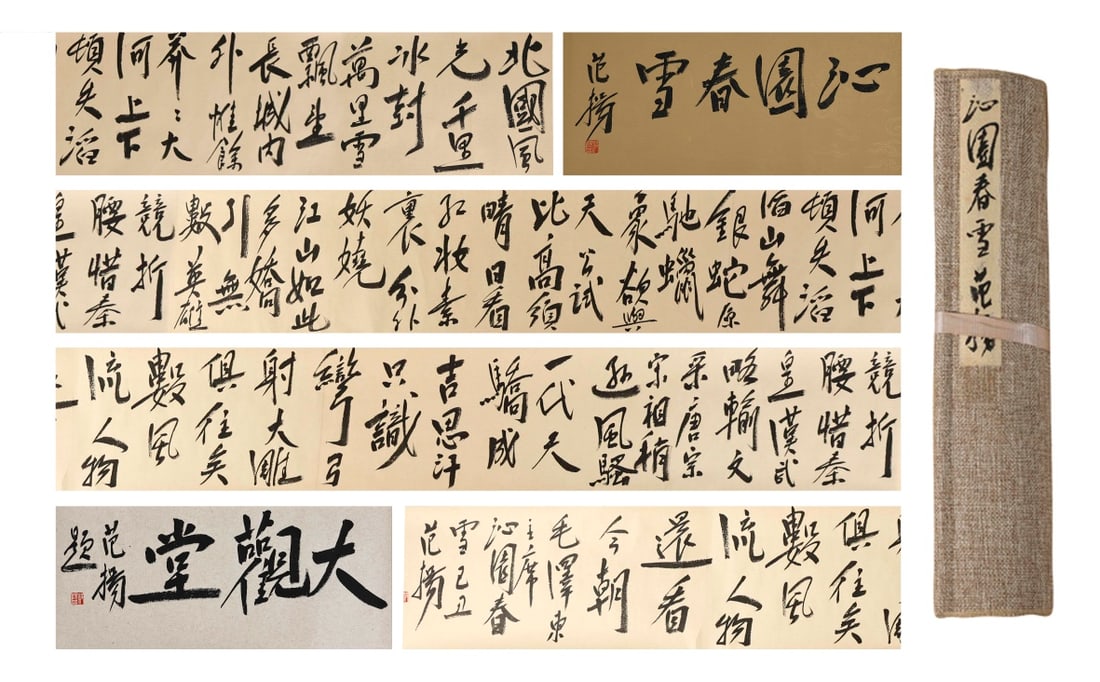 沁園春雪
范揚
北國風
光千里
冰封
萬里雪
飄望
長城內
外惟餘
莽〻大
河上下
頓失滔
河上下
頓失滔
滔山舞
銀蛇原
馳蠟
象欲與
天公試
比高須
晴日看
紅妝素
裹分外
妖嬈
江山如此
多嬌
引無
數英雄
競折
腰惜秦
皇漢武
競折
腰惜秦
皇漢武
略輸文
采唐宗
宋祖稍
遜風騷
一代天
驕成
吉思汗
只識
彎弓
射大雕
俱往矣
數風
流人物
俱往矣
數風
流人物
還看
今朝
毛澤東
主席
沁園春
雪己丑
范揚
大觀堂
范揚
題
沁園春雪范揚